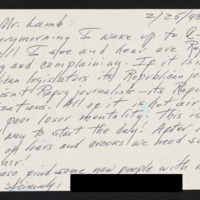 Mr. Lamb: 2/25/93
everymorning I wake up to C-S
all I see and hear are Rep
ing and complaining. If it isn't
ican legislators its Republican jo
isn't Repub journalist-its Repub
izations. All of it is hot air
poor loser mentality. this is
way to start the day! After
of liars and crooks we need so
air.
ease find some new people with m
Sincerely,